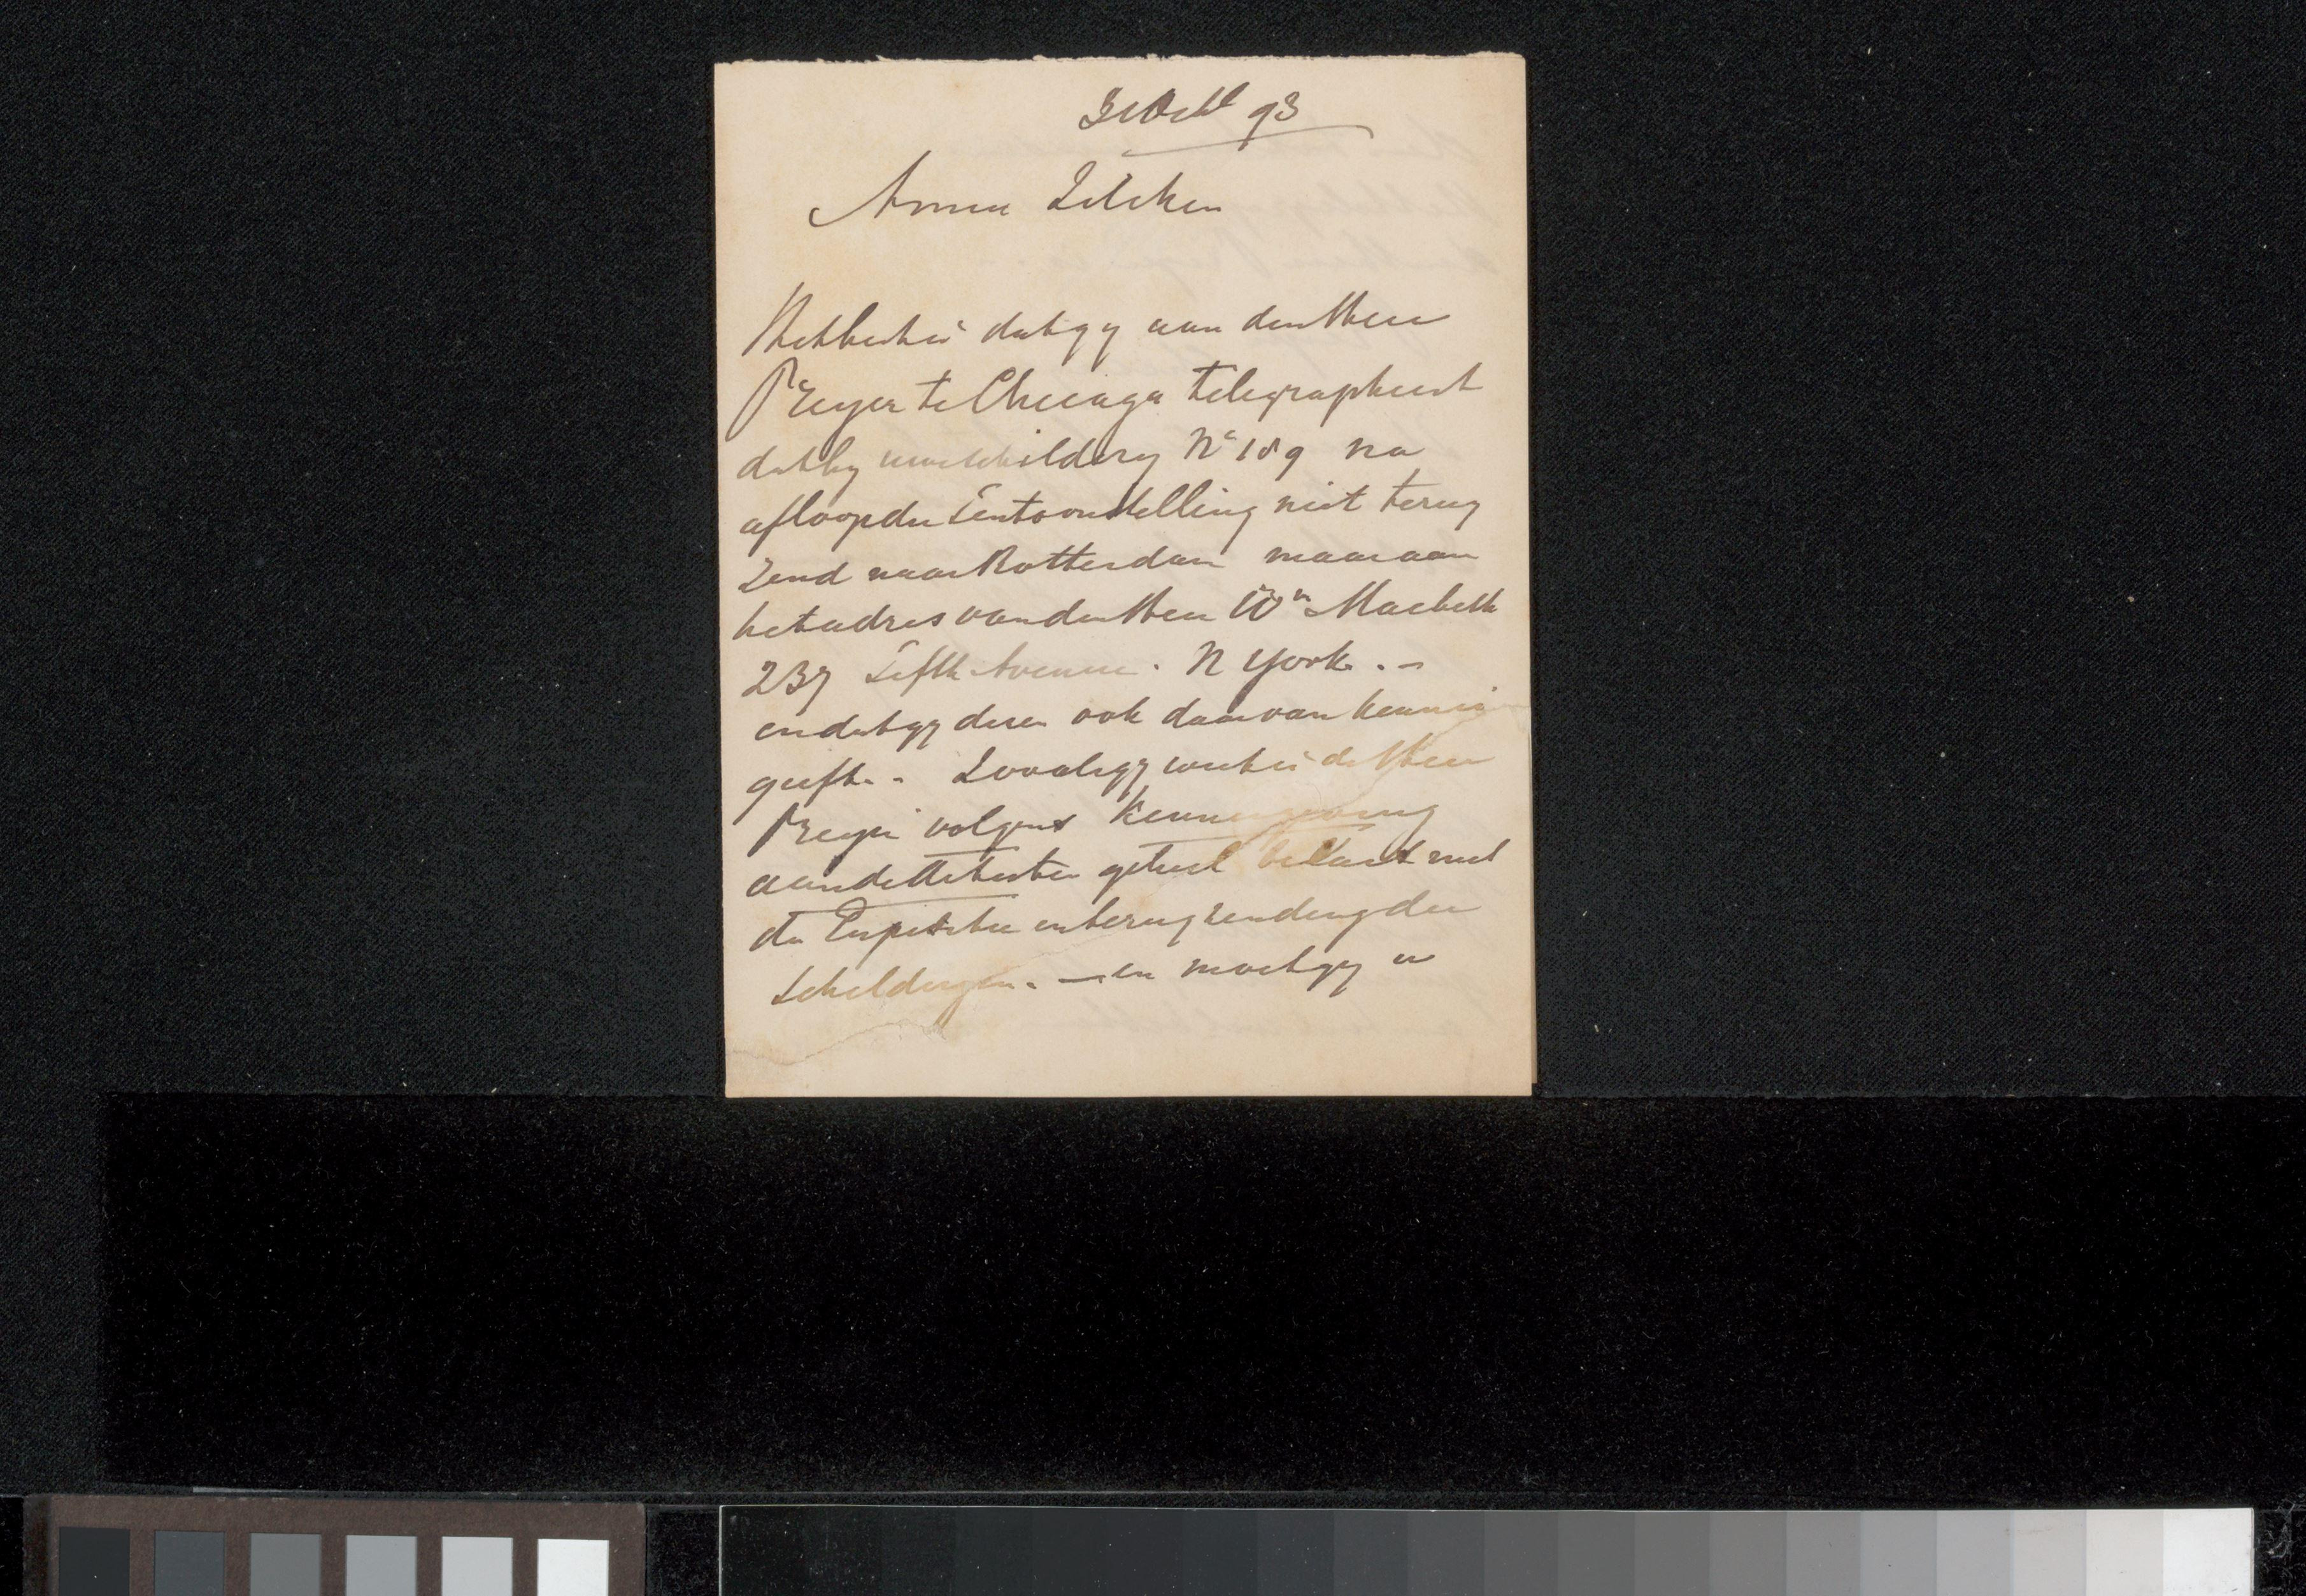 31 Oct 93
Amice Zilcken
Het beste is dat gy aan den Heer
Preyer te Chicago telegrapheert
dat hy uw schildery No 189 na
afloop der Tentoonstelling niet terug
zend naar Rotterdam maar aan
het adres van den Heer Wm Macbeth
237 Fifth Avenue. N York. -
en dat gy dezen ook daarvan kennis
geeft. - Zooals gy weet is de Heer
Preyer volgens kennisgeving
aan de Artisten geheel belast met
de Expeditie en terugzending der
schilderyen. - en moet gy u